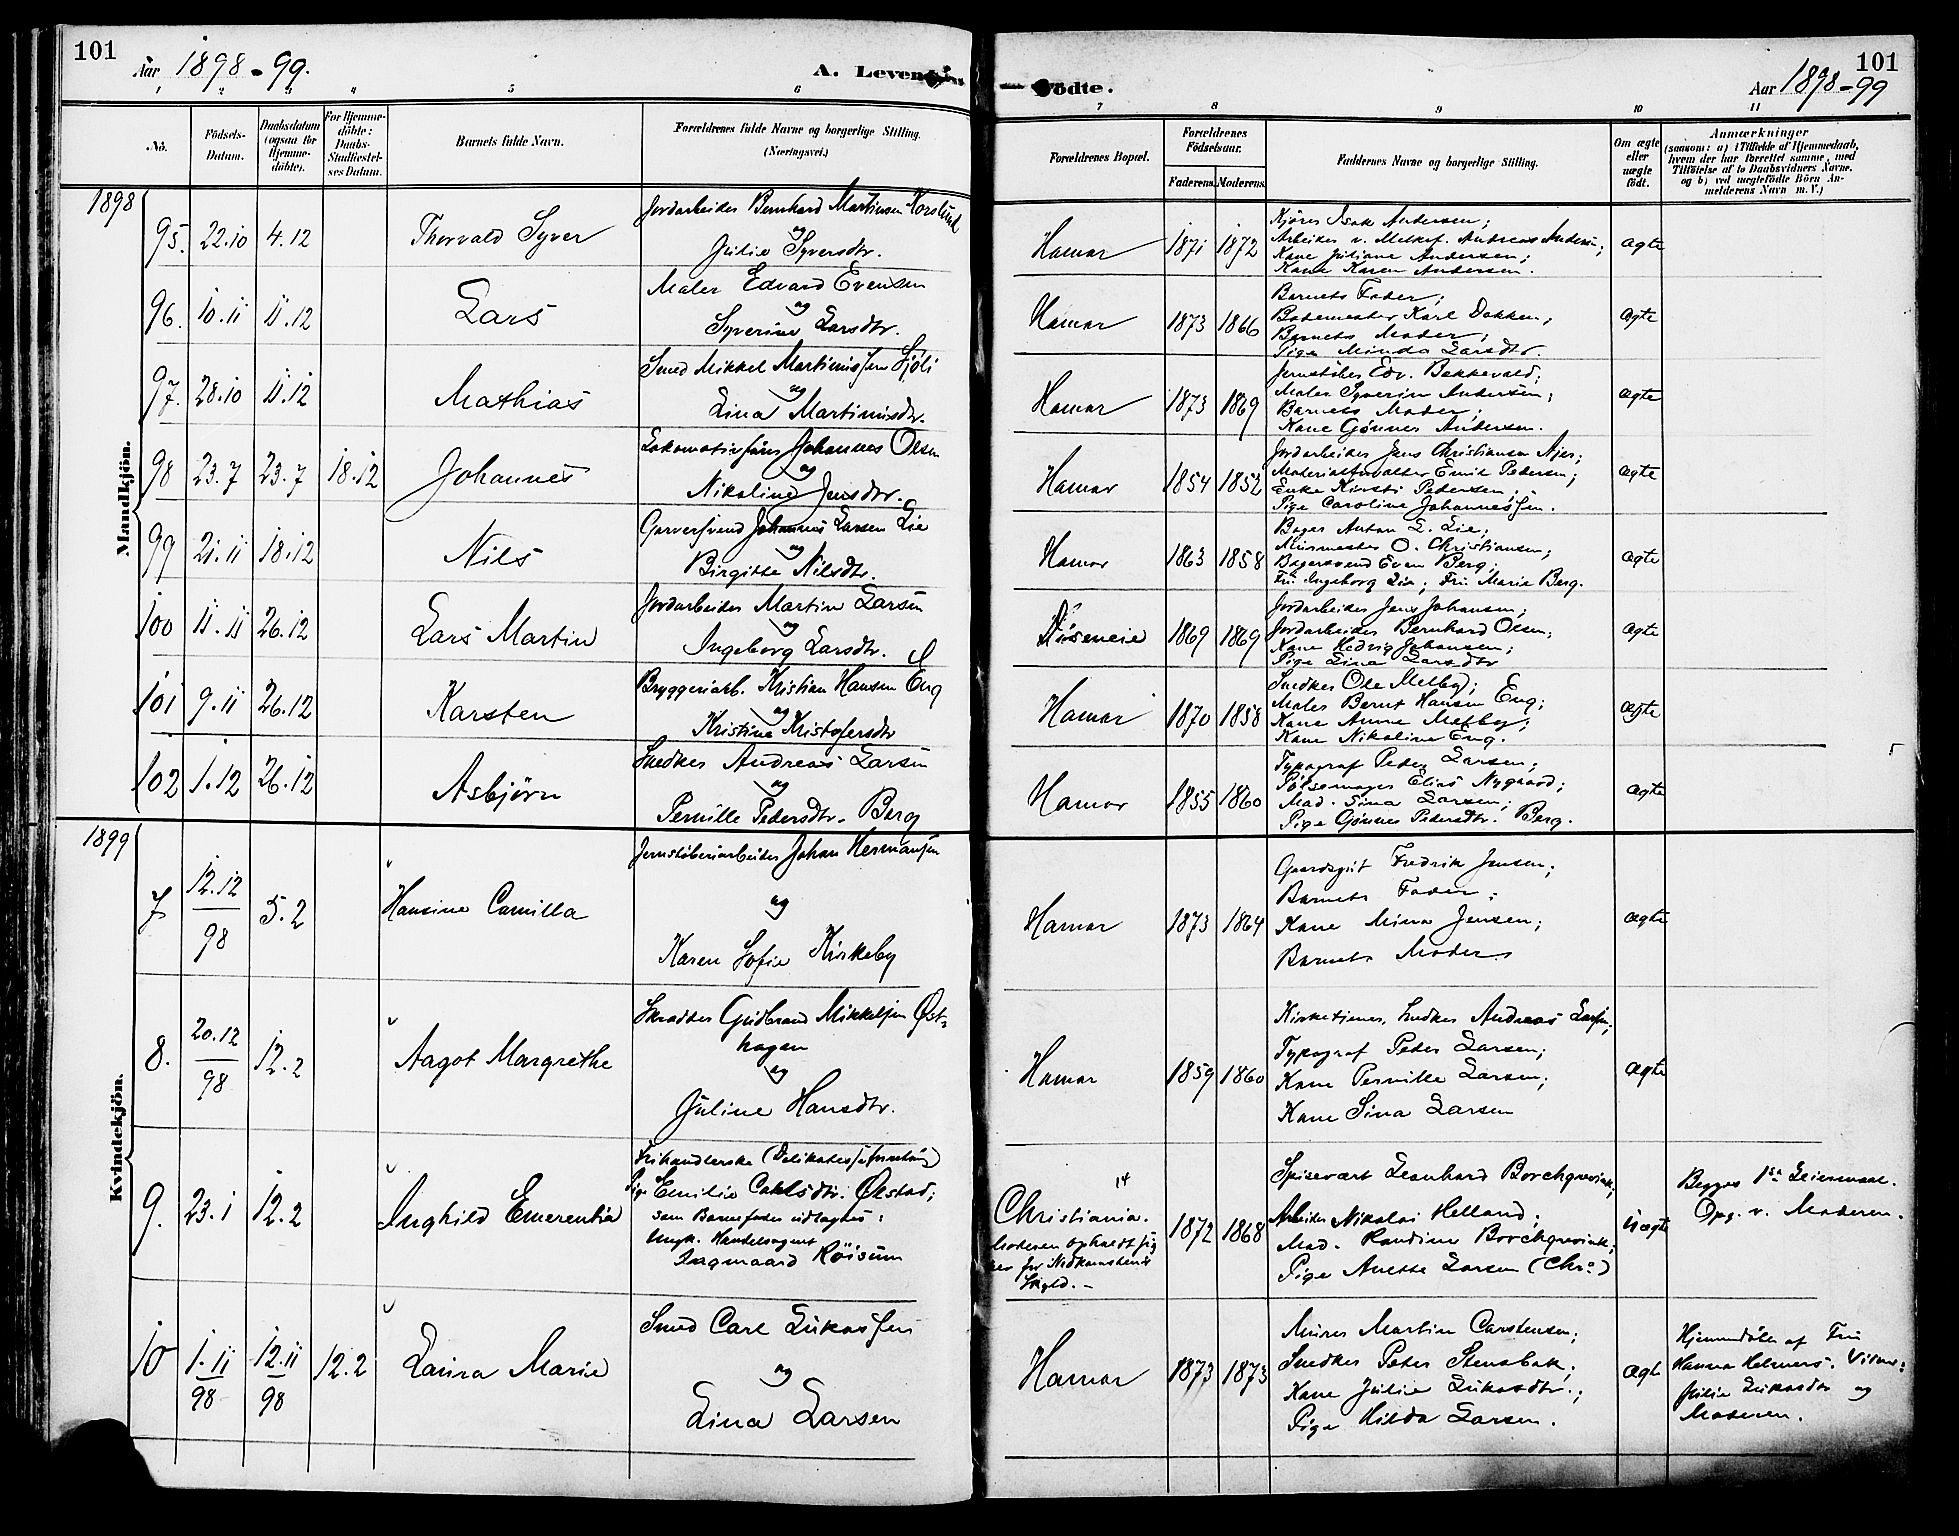 101
Aar 1898-99.
A. Levende
Födte.
101
Aar 1898-99
1 2 3 4 5 6
7 8 9 10 11
No.
Födsels-Datum.
Daabsdatum (ogsaa for Hjemmedöbte).
For Hjemmedöbte: Daabs-Stadfæstelses Datum.
Barnets fulde Navn.
Forældrenes fulde Navne og borgerlige Stilling.
(Næringsvei.)
Forældrenes Bopæl.
Forældrenes Födselsaar.
Faderens. Moderens.
Faddernes Navne og borgerlige Stilling.
Om ægte eller uægte födt.
Anmærkninger
(saasom: a) i Tilfælde af Hjemmedaab, hvem der har forrettet samme, med Tilföielse af to Daabsvidners Navne, og b) ved uægtefödte Börn Anmelderens Navn m. V.)
Mandkjön.
1898
95. 22.10 4.12 Thorvald Syver
Jordarbeider Bernhard Martinsen Korslund
og
Julie Syversdtr.
Hamar 1871 1872
Kjörer Isak Andersen;
Arbeider v. Melkef. Andreas Andersen;
Kone Juliane Andersen;
Kone Karen Andersen.
ægte
96. 10.11 11.12 Lars
Maler Edvard Evensen
og
Syverine Larsdtr.
Hamar 1873 1866
Barnets Fader;
Bademester Karl Dokken;
Barnets Moder;
Pige Minda Larsdtr.
ægte
97. 28.10 11.12 Mathias
Smed Mikkel Martiniussen Sjöli
og
Lina Martinusdtr.
Hamar 1873 1869
Jernstöber Edv. Bekkevold;
Maler Syverin Andersen;
Barnets Moder;
Kone Gönner Andersen.
ægte
98 23.7 23.7 18.12 Johannes
Lokomotivförer Johannes Olsen
og
Nikoline Jensdtr.
Hamar 1854 1852
Jordarbeider Jens Christiansen Njer;
Materialforvalter Emil Pedersen;
Enke Kirsti Pedersen;
Pige Caroline Johannessen.
ægte
99 21.11 18.12 Nils
Garversvend Johannes Larsen Lie
og
Birgitte Nilsdtr.
Hamar 1863 1858
Bager Anton L. Lie;
Murmester O. Christiansen;
Bagersvend Even Berg;
Fru Ingeborg Lie; Fru Marie Berg.
ægte
100 11.11 26.12 Lars Martin
Jordarbeider Martin Larsen
og
Ingeborg Larsdtr.
1869 1869
Jordarbeider Jens Johansen;
Jordarbeider Bernhard Olsen;
Kone Hedvig Johansen;
Pige Lina Larsdtr
ægte
101 9.11 26.12 Karsten
Bryggeriarb. Kristian Hansen Eng
og
Kristine Kristofersdtr
Hamar 1870 1858
Snedker Ole Melby;
Maler Bernt Hansen Eng;
Kone Anne Melby;
Kone Nikoline Eng.
ægte
102 1.12 26.12 Asbjörn
Snedker Andreas Larsen
og
Pernille Pedersdtr. Berg
Hamar 1855 1860
Typograf Peder Larsen;
Pölsemager Elias Nygaard;
Mad. Sina Larsen;
Pige Gönner Pedersdtr. Berg.
ægte
Kvindekjön.
1899
7 12.12/98 5.2 Hansine Camilla
Jernstöberiarbeider Johan Hermansen
og
Karen Sofie Kirkeby
Hamar 1873 1864
Gaardsgut Fredrik Jensen;
Barnets Fader;
Kone Mina Jensen;
Barnets Moder
ægte
8. 20.12/98 12.2 Aagot Margrethe
Skrædder Gudbrand Mikkelsen Öst-
hagen
og
Juline Hansdtr.
Hamar 1859 1860
Kirketjener, Snedker Andreas Larsen;
Typograf Peder Larsen;
Kone Pernille Larsen;
Kone Sina Larsen
ægte
9. 23.1 12.2 Inghild Emerentia
Frihandlerske (Delikatesseforretning)
Pige Emilie Carlsdtr. Økstad;
som Barnefader udlagdes:
Ungk. Handelsagent
Dagmaard Röisum
14
Christiania.
Moderen opholdt sig
her for Nedkomstens
Skyld.-
1872 1868
Spisevært Leonhard Borchgrevink;
Arbeider Nikolai Helland;
Mad. Randine Borchgrevink;
Pige Anette Larsen (Chr.a)
Uægte
Begges 1ste Leiermaal.
Opg. v. Moderen.
10 1.11/98 12.11/98 12.2 Laura Marie
Smed Carl Lukassen
og
Lina Larsen
Hamar 1873 1873
Murer Martin Carstensen;
Snedker Peter Stensbak;
Kone Julie Lukasdtr.;
Pige Hilda Larsen.
ægte
Hjemmedöbt af Fru
Hanna Helmers. Vidner:
Julie Lukasdtr og
Moderen.